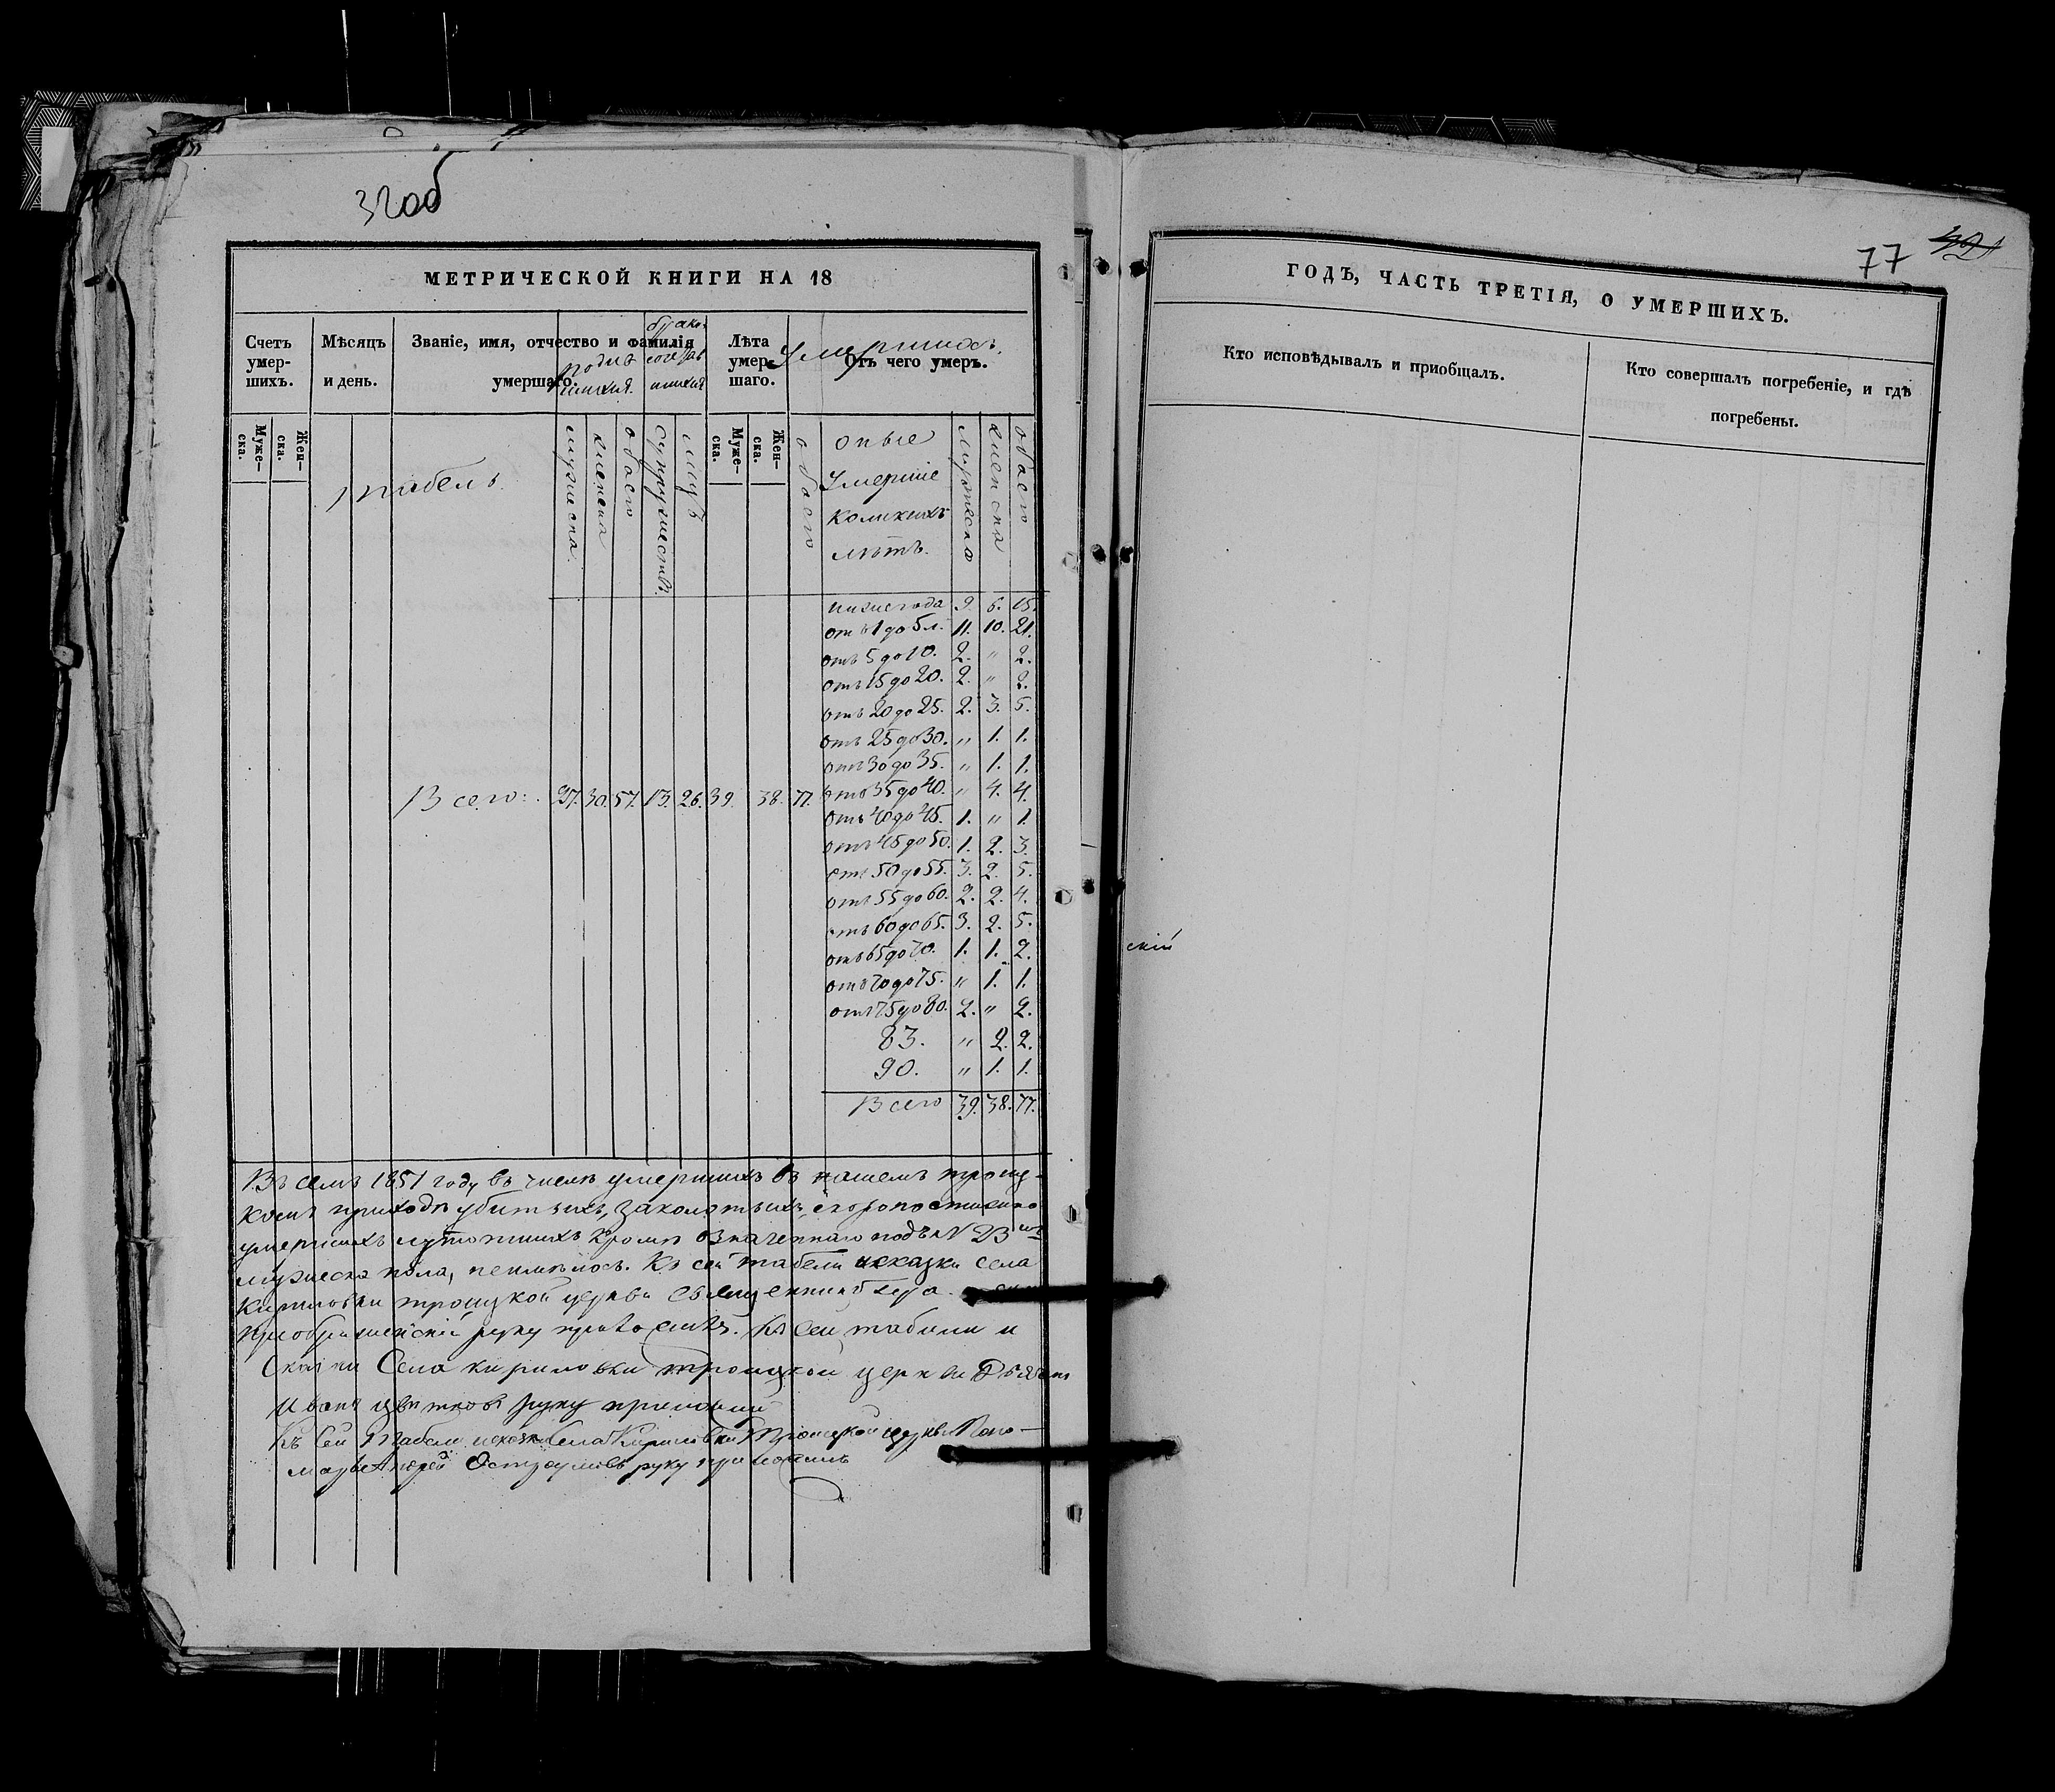 32об
МЕТРИЧЕСКОЙ КНИГИ НА 18
Счетъ умер-шихъ.
Мѣсяцъ и день.
Званіе, имя, отчество и фамилія умершаго.
Лѣта умер-шаго.
Отъ чего умеръ.
Муже-ска.
Жен-ска.
Муже-ска.
Жен-ска.
Табель
мужеска
женска
обоего
супружествъ
лицъ
обоего
оные
Умершіе
коликихъ
лѣтъ.
мужеска
женска
обоего
ниже года 9. 6. 15.
отъ 1 до 5 л. 11. 10. 21.
отъ 5 до 10. 2. " 2.
отъ 15 до 20. 2. " 2.
отъ 20 до 25. 2. 3. 5.
отъ 25 до 30. " 1. 1.
отъ 30 до 35. " 1. 1.
Всего: 27. 30. 57. 13. 26. 39. 38. 77. отъ 35 до 40. " 4. 4.
отъ 40 до 45. 1. " 1.
отъ 45 до 50. 1. 2. 3.
отъ 50 до 55. 3. 2. 5.
отъ 55 до 60. 2. 2. 4.
отъ 60 до 65. 3. 2. 5.
отъ 65 до 70. 1. 1. 2.
отъ 70 до 75. " 1. 1.
отъ 75 до 80. 2. " 2.
83. " 2. 2.
90. " 1. 1.
Всего 39. 38. 77.
Въ семъ 1851 году въ числѣ умершихъ въ нашемъ троиц-
комъ приходѣ убитыхъ, заколотыхъ, скоропостижно
умершихъ кромѣ означеннаго подъ N 23
мужеска пола, неимѣлось. Къ сей табели села
Кириловки троицкой церкви священникъ
руку приложилъ. Къ сей табели и
Села кириловки троицкой церкви
Иванъ Цвѣтковъ руку приложилъ
Къ сей Табели села Кириловки Троицкой церкви Поно-
марь Андрей Остроумовъ руку приложилъ
77
ГОДЪ, ЧАСТЬ ТРЕТІЯ, О УМЕРШИХЪ.
Кто исповѣдывалъ и пріобщалъ.
Кто совершалъ погребеніе, и гдѣ
погребены.
скій